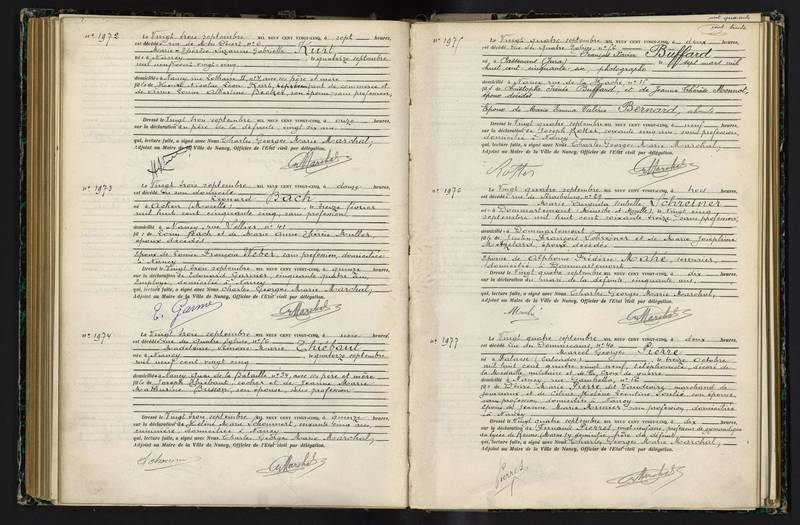 N° 1972
Le Vingt trois septembre MIL NEUF CENT VINGT-CINQ, à sept heures,
est décédée rue
Marie Thérèse Suzanne Gabrielle Kurt
née à Nancy, le quatorze septembre
mil neuf cent vingt cinq
domiciliée à Nancy, rue Lothaire II, n° 4, avec ses père et mère
fille de Henri Nicolas Léon Kurt, représentant de commerce et
de Catherine Becker, son épouse, sans profession,
Dressé le Vingt trois septembre MIL NEUF CENT VINGT-CINQ, à onze heures,
sur la déclaration du père de la défunte, vingt six ans,
qui, lecture faite, a signé avec Nous Charles Georges Marie Marchal,
Adjoint au Maire de la Ville de Nancy, Officier de l'Etat civil par délégation.
CMarchal
N° 1973
Le Vingt trois septembre MIL NEUF CENT VINGT-CINQ, à douze heures,
est décédé en son domicile
Léonard Bach
né à Achen (Moselle), le treize février
mil huit cent cinquante cinq, sans profession
domicilié à Nancy, rue n° 41
fils de Louis Bach et de Marie Anne Thérèse Muller,
époux décédés
Epoux de Louise Françoise Weber, sans profession, domiciliée
à Nancy
Dressé le Vingt trois septembre MIL NEUF CENT VINGT-CINQ, à quinze heures,
sur la déclaration de Edouard Garnier, cinquante quatre ans,
employé, domicilié à Nancy
qui, lecture faite, a signé avec Nous Charles Georges Marie Marchal,
Adjoint au Maire de la Ville de Nancy, Officier de l'Etat civil par délégation.
E. Garnier
CMarchal
N° 1974
Le Vingt trois septembre MIL NEUF CENT VINGT-CINQ, à heures,
est décédée rue de Quatre Eglises, n°
Madeleine Simone Marie Thiébaut
née à Nancy, le quatorze septembre
mil neuf cent vingt cinq
domiciliée à Nancy, Quai de la Bataille, n° 34, avec ses père et mère
fille de Joseph Thiébaut, cocher et de Jeanne Marie
Catherine Busson, son épouse, sans profession
Dressé le Vingt trois septembre MIL NEUF CENT VINGT-CINQ, à quinze heures,
sur la déclaration de Hélène Marie Schouvert, soixante cinq ans,
domiciliée à Nancy
qui, lecture faite, a signé avec Nous Charles Georges Marie Marchal,
Adjoint au Maire de la Ville de Nancy, Officier de l'Etat civil par délégation.
CMarchal
N° 1975
Le Vingt quatre septembre MIL NEUF CENT VINGT-CINQ, à deux heures,
est décédé rue des Quatre Eglises, n°
François Xavier Buffard
né à Clairvaux (Jura), le sept mars mil
huit cent cinquante six, photographe
domicilié à Nancy, rue de la
fils de Christophe Buffard, et de Jeanne Thérèse Monnot,
époux décédés
Epoux de Marie Emma Valérie Bernard,
Dressé le Vingt quatre septembre MIL NEUF CENT VINGT-CINQ, à neuf heures,
sur la déclaration de Joseph Rotter, soixante cinq ans, sans profession,
domicilié à Nancy
qui, lecture faite, a signé avec Nous Charles Georges Marie Marchal,
Adjoint au Maire de la Ville de Nancy, Officier de l'Etat civil par délégation.
Rotter
CMarchal
N° 1976
Le Vingt quatre septembre MIL NEUF CENT VINGT-CINQ, à trois heures,
est décédée rue de Strasbourg, n° 29
Marie Isabelle Schreiner
née à Dommartemont (Meurthe et Moselle), le vingt cinq
septembre mil huit cent soixante treize, sans profession
domiciliée à Dommartemont
fille de François Schreiner et de Marie Joséphine
époux décédés
Epouse de Alphonse Frédéric Mahé,
domicilié à Dommartemont
Dressé le Vingt quatre septembre MIL NEUF CENT VINGT-CINQ, à dix heures,
sur la déclaration du mari de la défunte, cinquante ans,
qui, lecture faite, a signé avec Nous Charles Georges Marie Marchal,
Adjoint au Maire de la Ville de Nancy, Officier de l'Etat civil par délégation.
CMarchal
N° 1977
Le Vingt quatre septembre MIL NEUF CENT VINGT-CINQ, à deux heures,
est décédé rue des Dominicains, n° 40
Marcel Georges Pierre
né à Falaise (Calvados), le treize octobre
mil huit cent quatre vingt neuf, téléphoniste, décoré de
la Médaille militaire et de la Croix de guerre
domicilié à Nancy, rue Gambetta, n° 12
fils de Désiré Marie Pierre marchand de
journaux et de Céline son épouse,
sans profession, domiciliés à Nancy
Epoux de Jeanne Marie Mesmier, sans profession, domiciliée
à Nancy
Dressé le Vingt quatre septembre MIL NEUF CENT VINGT-CINQ, à dix heures,
sur la déclaration de Fernand Pierre, professeur de gymnastique
au lycée de Reims (Marne), y domicilié, frère du défunt,
qui, lecture faite, a signé avec Nous Charles Georges Marie Marchal,
Adjoint au Maire de la Ville de Nancy, Officier de l'Etat civil par délégation.
Pierre
CMarchal